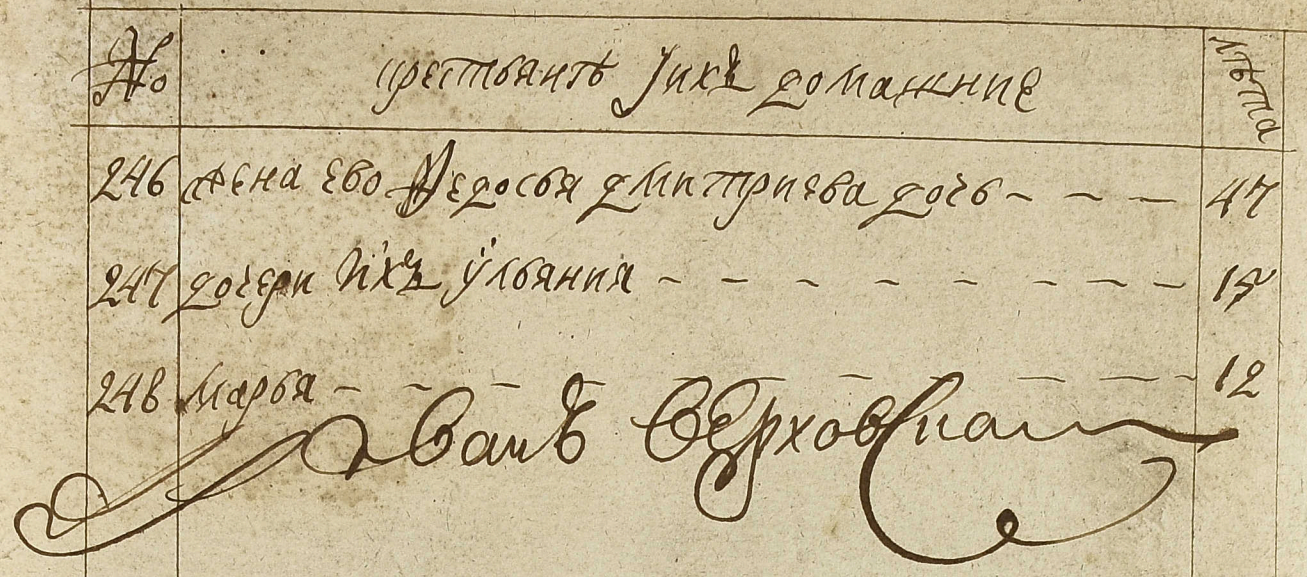 № крестьянъ Iихъ домашние лѣта
246 жена ево Ѳедосья дмитриева дочь - - - 47
247 дочери ихъ ульяния - - - - - - - - 17
248 марья - - - - - - - - 12
Iванъ Верховскай